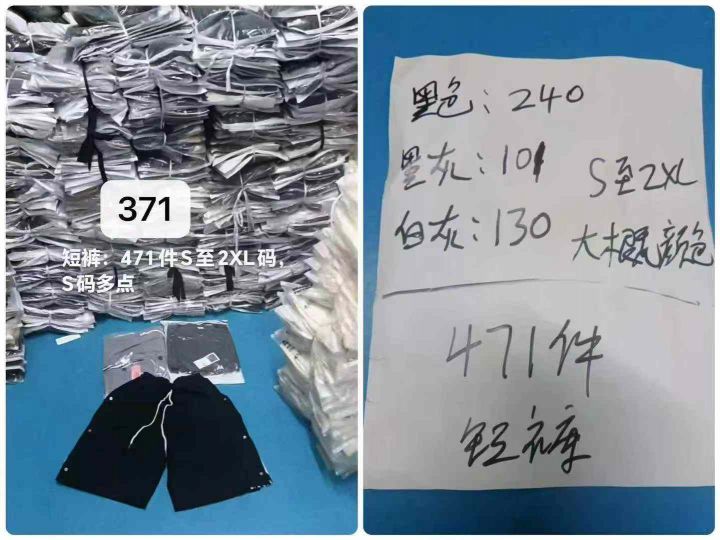 371
短裤：471件S至2XL码，
S码多点
黑色：240
黑灰：101
S至2XL
白灰：130
大概颜色
471件
短裤